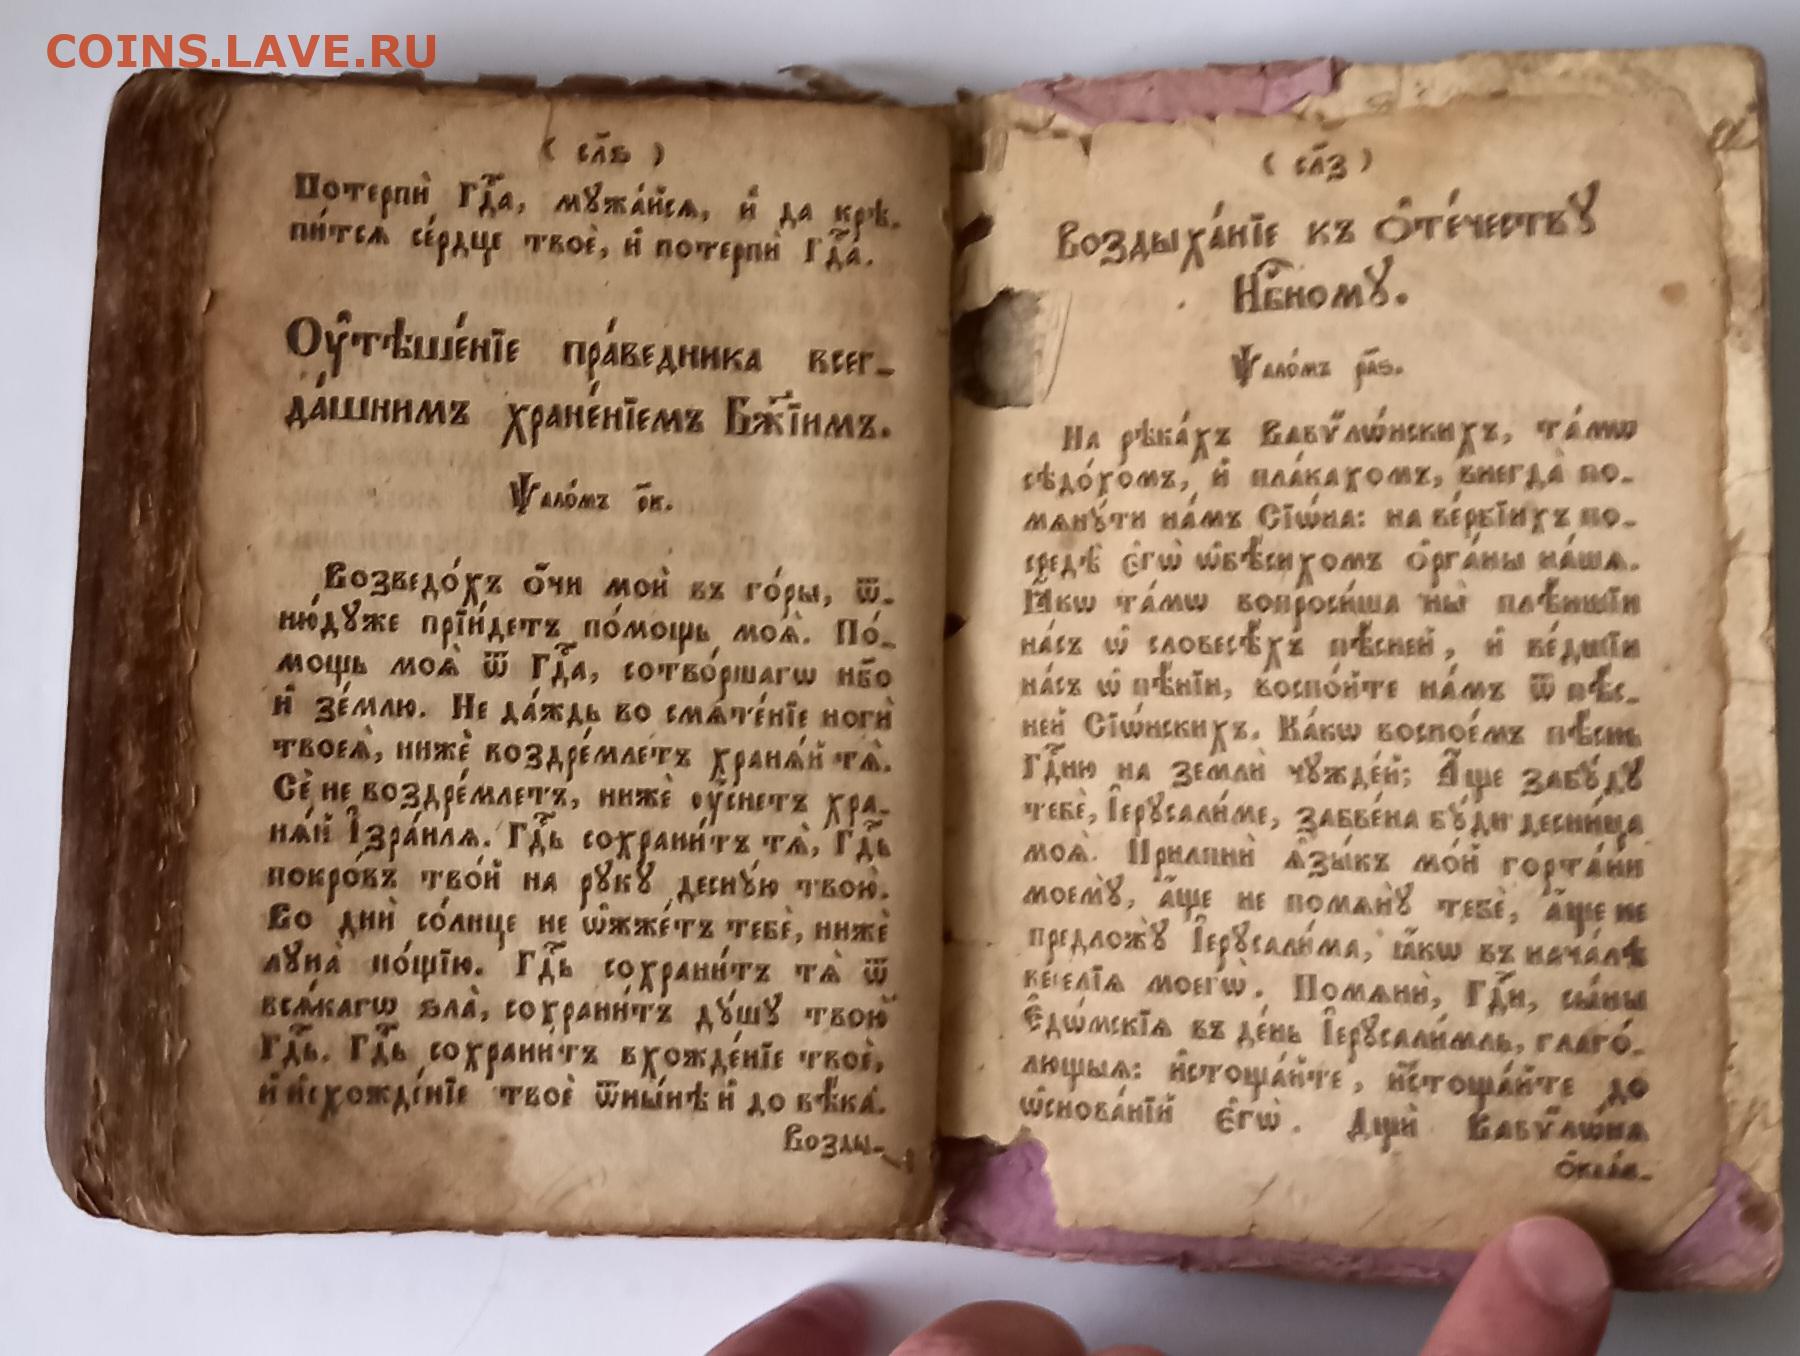 COINS.LAVE.RU
( сл҃ѕ )
Потерпѝ Гдⷭ҇а, мꙋжа́йсѧ, и҆ да крѣ-
пи́тсѧ се́рдце твоѐ, и҆ потерпѝ Гдⷭ҇а.
Оу҆тѣше́нїе пра́ведника всег-
да́шнимъ хране́нїемъ Бж҃їимъ.
Ѱало́мъ рк҃.
Возведо́хъ ѻ҆́чи моѝ въ го́ры, ѿ-
ню́дꙋже прїи́детъ по́мощь моѧ̀. По́-
мощь моѧ̀ ѿ Гдⷭ҇а, сотво́ршагѡ нб҃о
и҆ зе́млю. Не да́ждь во смѧте́нїе ногѝ
твоеѧ̀, нижѐ воздре́млетъ хранѧ́й тѧ̀.
Сѐ не воздре́млетъ, нижѐ оу҆́снетъ хра-
нѧ́й І҆зра́илѧ. Гдⷭ҇ь сохрани́тъ тѧ̀, Гдⷭ҇ь
покро́въ тво́й на рꙋкꙋ̀ деснꙋ́ю твою̀.
Во днѝ со́лнце не ѡ҆жже́тъ тебѐ, нижѐ
лꙋна̀ но́щїю. Гдⷭ҇ь сохрани́тъ тѧ̀ ѿ
всѧ́кагѡ ѕла̀, сохрани́тъ дꙋ́шꙋ твою̀
Гдⷭ҇ь. Гдⷭ҇ь сохрани́тъ вхожде́нїе твоѐ,
и҆ и҆схожде́нїе твоѐ ѿны́нѣ и҆ до вѣ́ка.
Возды-
( сл҃з )
Воздыха́нїе къ Ѻ҆те́чествꙋ
Нб҃номꙋ.
Ѱало́мъ рл҃ѕ.
На рѣка́хъ Вавѷлѡ́нскихъ, та́мѡ
сѣдо́хомъ, и҆ пла́кахомъ, внегда̀ по-
мѧнꙋ́ти на́мъ Сїѡ́на: на ве́рбїихъ по-
средѣ̀ є҆гѡ̀ ѡ҆бѣ́сихомъ ѻ҆рга́ны на́шѧ.
Ꙗ҆́кѡ та́мѡ вопроси́ша ны̀ плѣ́ншїи
на́съ ѡ҆ словесѣ́хъ пѣ́сней, и҆ ве́дшїи
на́съ ѡ҆ пѣ́нїи, воспо́йте на́мъ ѿ пѣ́с-
ней Сїѡ́нскихъ. Ка́кѡ воспое́мъ пѣ́снь
Гдⷭ҇ню на землѝ чꙋжде́й; А҆́ще забꙋ́дꙋ
тебѐ, І҆ерꙋсали́ме, забве́на бꙋ́ди десни́ца
моѧ̀. Прилпнѝ ѧ҆зы́къ мо́й горта́ни
моемꙋ̀, а҆́ще не помѧнꙋ̀ тебѐ, а҆́ще не
предложꙋ̀ І҆ерꙋсали́ма, ꙗ҆́кѡ въ нача́лѣ
весе́лїѧ моегѡ̀. Помѧнѝ, Гдⷭ҇и, сы́ны
Є҆дѡ́мскїѧ въ де́нь І҆ерꙋсали́мль, глаго́-
лющыѧ: и҆стоща́йте, и҆стоща́йте до
ѡ҆снова́нїй є҆гѡ̀. Дщѝ Вавѷлѡ́нѧ
ѻ҆каѧ́н-